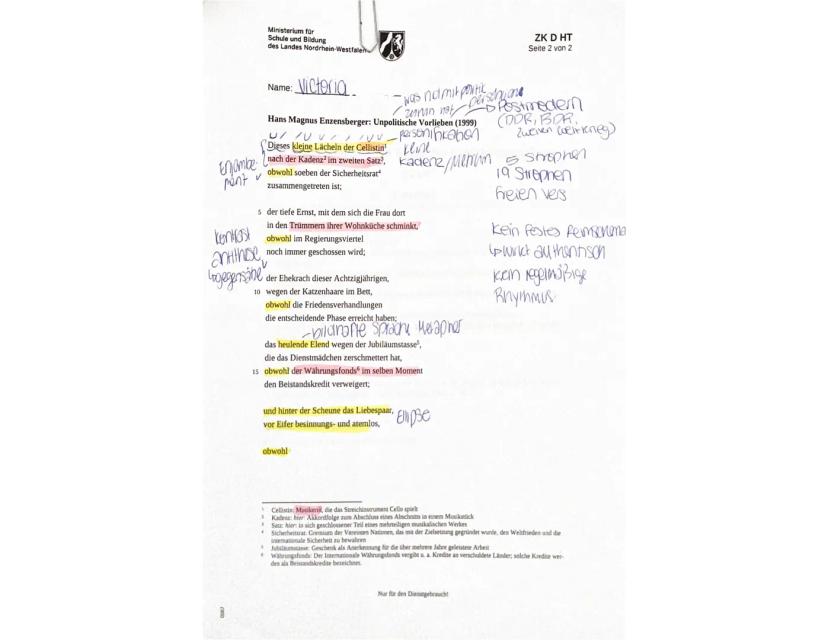 Ministerium für
Schule und Bildung
des Landes Nordrhein-Westfalen
ZK D HT
Seite 2 von 2
Name: Victoria
Hans Magnus Enzensberger: Unpolitische Vorlieben (1999)
Postmodern
(DDR, BDR,
Personifikation
Kadenz/
5 Strophen
19 Strophen
freien Vers
Enjambe-
ment
Dieses kleine Lächeln der Cellistin¹
nach der Kadenz² im zweiten Satz³,
obwohl soeben der Sicherheitsrat⁴
zusammengetreten ist;
5 der tiefe Ernst, mit dem sich die Frau dort
in den Trümmern ihrer Wohnküche schminkt,
obwohl im Regierungsviertel
noch immer geschossen wird;
Kontrast
kein festes Reimschema
wirkt authentisch
kein regelmäßige
Rhytmus
der Ehekrach dieser Achtzigjährigen,
10 wegen der Katzenhaare im Bett,
obwohl die Friedensverhandlungen
die entscheidende Phase erreicht haben;
bildhafte Sprache Metapher
das heulende Elend wegen der Jubiläumstasse⁵,
die das Dienstmädchen zerschmettert hat,
15 obwohl der Währungsfonds⁶ im selben Moment
den Beistandskredit verweigert;
und hinter der Scheune das Liebespaar,
vor Eifer besinnungs- und atemlos,
Ellipse
obwohl
¹ Cellistin: Musikerin, die das Streichinstrument Cello spielt
² Kadenz: hier: Akkordfolge zum Abschluss eines Abschnitts in einem Musikstück
³ Satz: hier: in sich geschlossener Teil eines mehrteiligen musikalischen Werkes
⁴ Sicherheitsrat: Gremium der Vereinten Nationen, das mit der Zielsetzung gegründet wurde, den Weltfrieden und die
internationale Sicherheit zu bewahren
⁵ Jubiläumstasse: Geschenk als Anerkennung für die über mehrere Jahre geleistete Arbeit
⁶ Währungsfonds: Der Internationale Währungsfonds vergibt u. a. Kredite an verschuldete Länder; solche Kredite wer-
den als Beistandskredite bezeichnet.
Nur für den Dienstgebrauch!